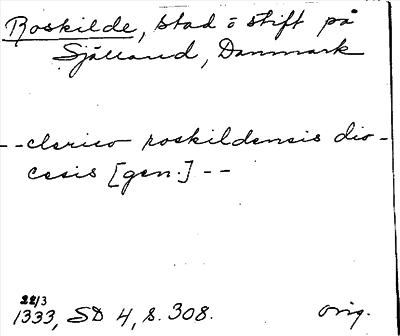 Roskilde, stad o stift på
Själland, Danmark
--clerico roskildensis dio-
cesis [gen.] --
22/3
1333, SD 4, s. 308. orig.